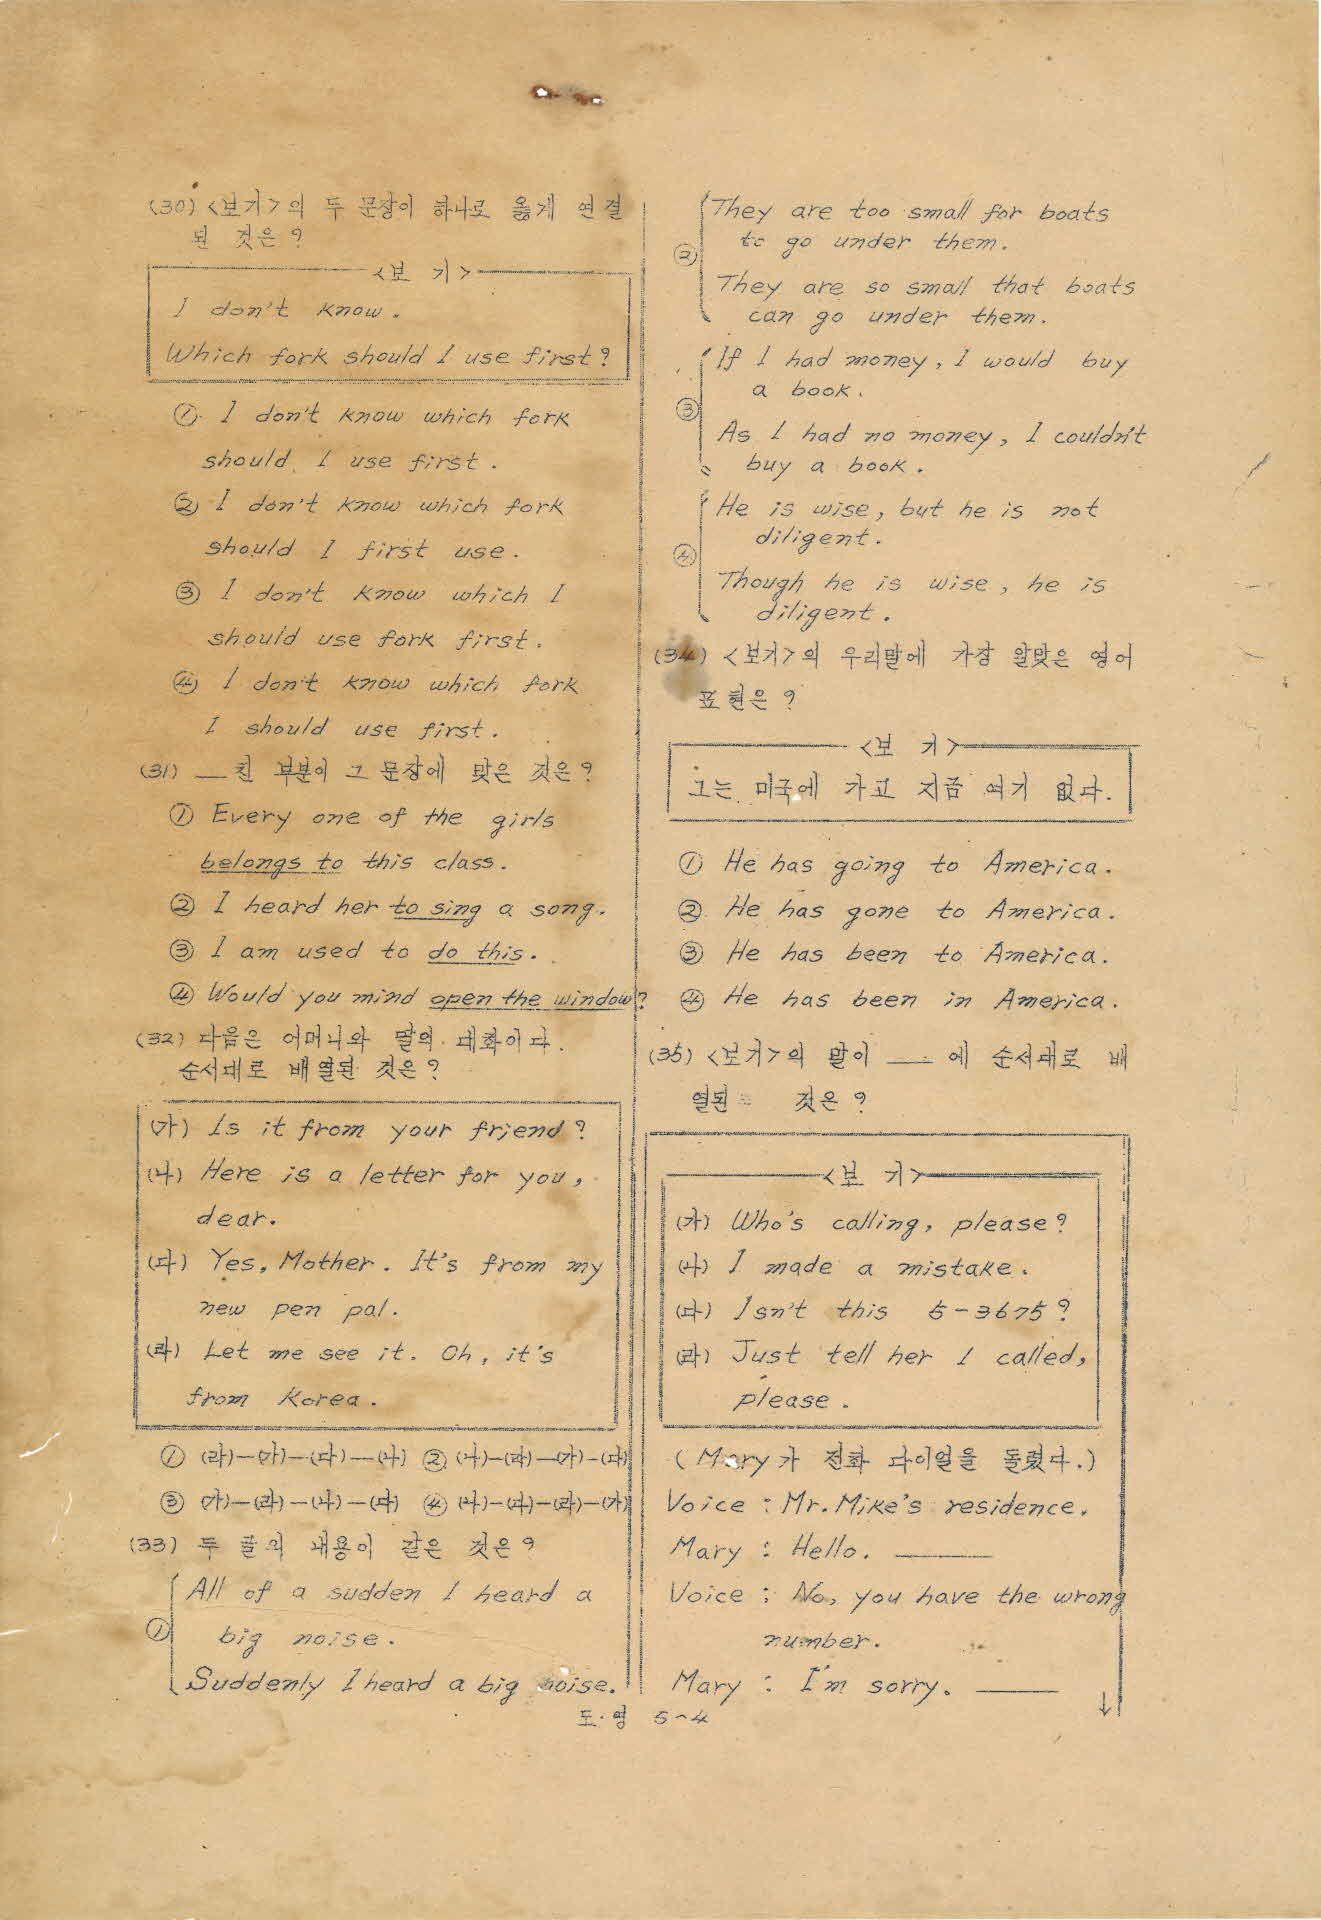 (30) <보기>의 두 문장이 하나로 옳게 연결
된 것은?
<보 기>
I don't know.
Which fork should I use first?
① I don't know which fork
should I use first.
② I don't know which fork
should I first use.
③ I don't know which I
should use fork first.
④ I don't know which fork
I should use first.
(31) __친 부분이 그 문장에 맞은 것은?
① Every one of the girls
belongs to this class.
② I heard her to sing a song.
③ I am used to do this.
④ Would you mind open the window?
(32) 다음은 어머니와 딸의 대화이다.
순서대로 배열된 것은?
(가) Is it from your friend?
(나) Here is a letter for you,
dear.
(다) Yes, Mother. It's from my
new pen pal.
(라) Let me see it. Oh, it's
from Korea.
① (라)-(가)-(다)-(나) ② (나)-(라)-(가)-(다)
③ (가)-(라)-(나)-(다) ④ (나)-(다)-(라)-(가)
(33) 두 글의 내용이 같은 것은?
① All of a sudden I heard a
big noise.
Suddenly I heard a big noise.
They are too small for boats
to go under them.
②
They are so small that boats
can go under them.
If I had money, I would buy
a book.
③
As I had no money, I couldn't
buy a book.
He is wise, but he is not
diligent.
④
Though he is wise, he is
diligent.
(34) <보기>의 우리말에 가장 알맞은 영어
표현은?
<보 기>
그는 미국에 가고 지금 여기 없다.
① He has going to America.
② He has gone to America.
③ He has been to America.
④ He has been in America.
(35) <보기>의 말이 ___에 순서대로 배
열된 것은?
<보 기>
(가) Who's calling, please?
(나) I made a mistake.
(다) Isn't this 5-3675?
(라) Just tell her I called,
please.
(Mary가 전화 다이얼을 돌렸다.)
Voice : Mr. Mike's residence.
Mary : Hello. ______
Voice : No, you have the wrong
number.
Mary : I'm sorry. _____ ↓
도·영 5-4